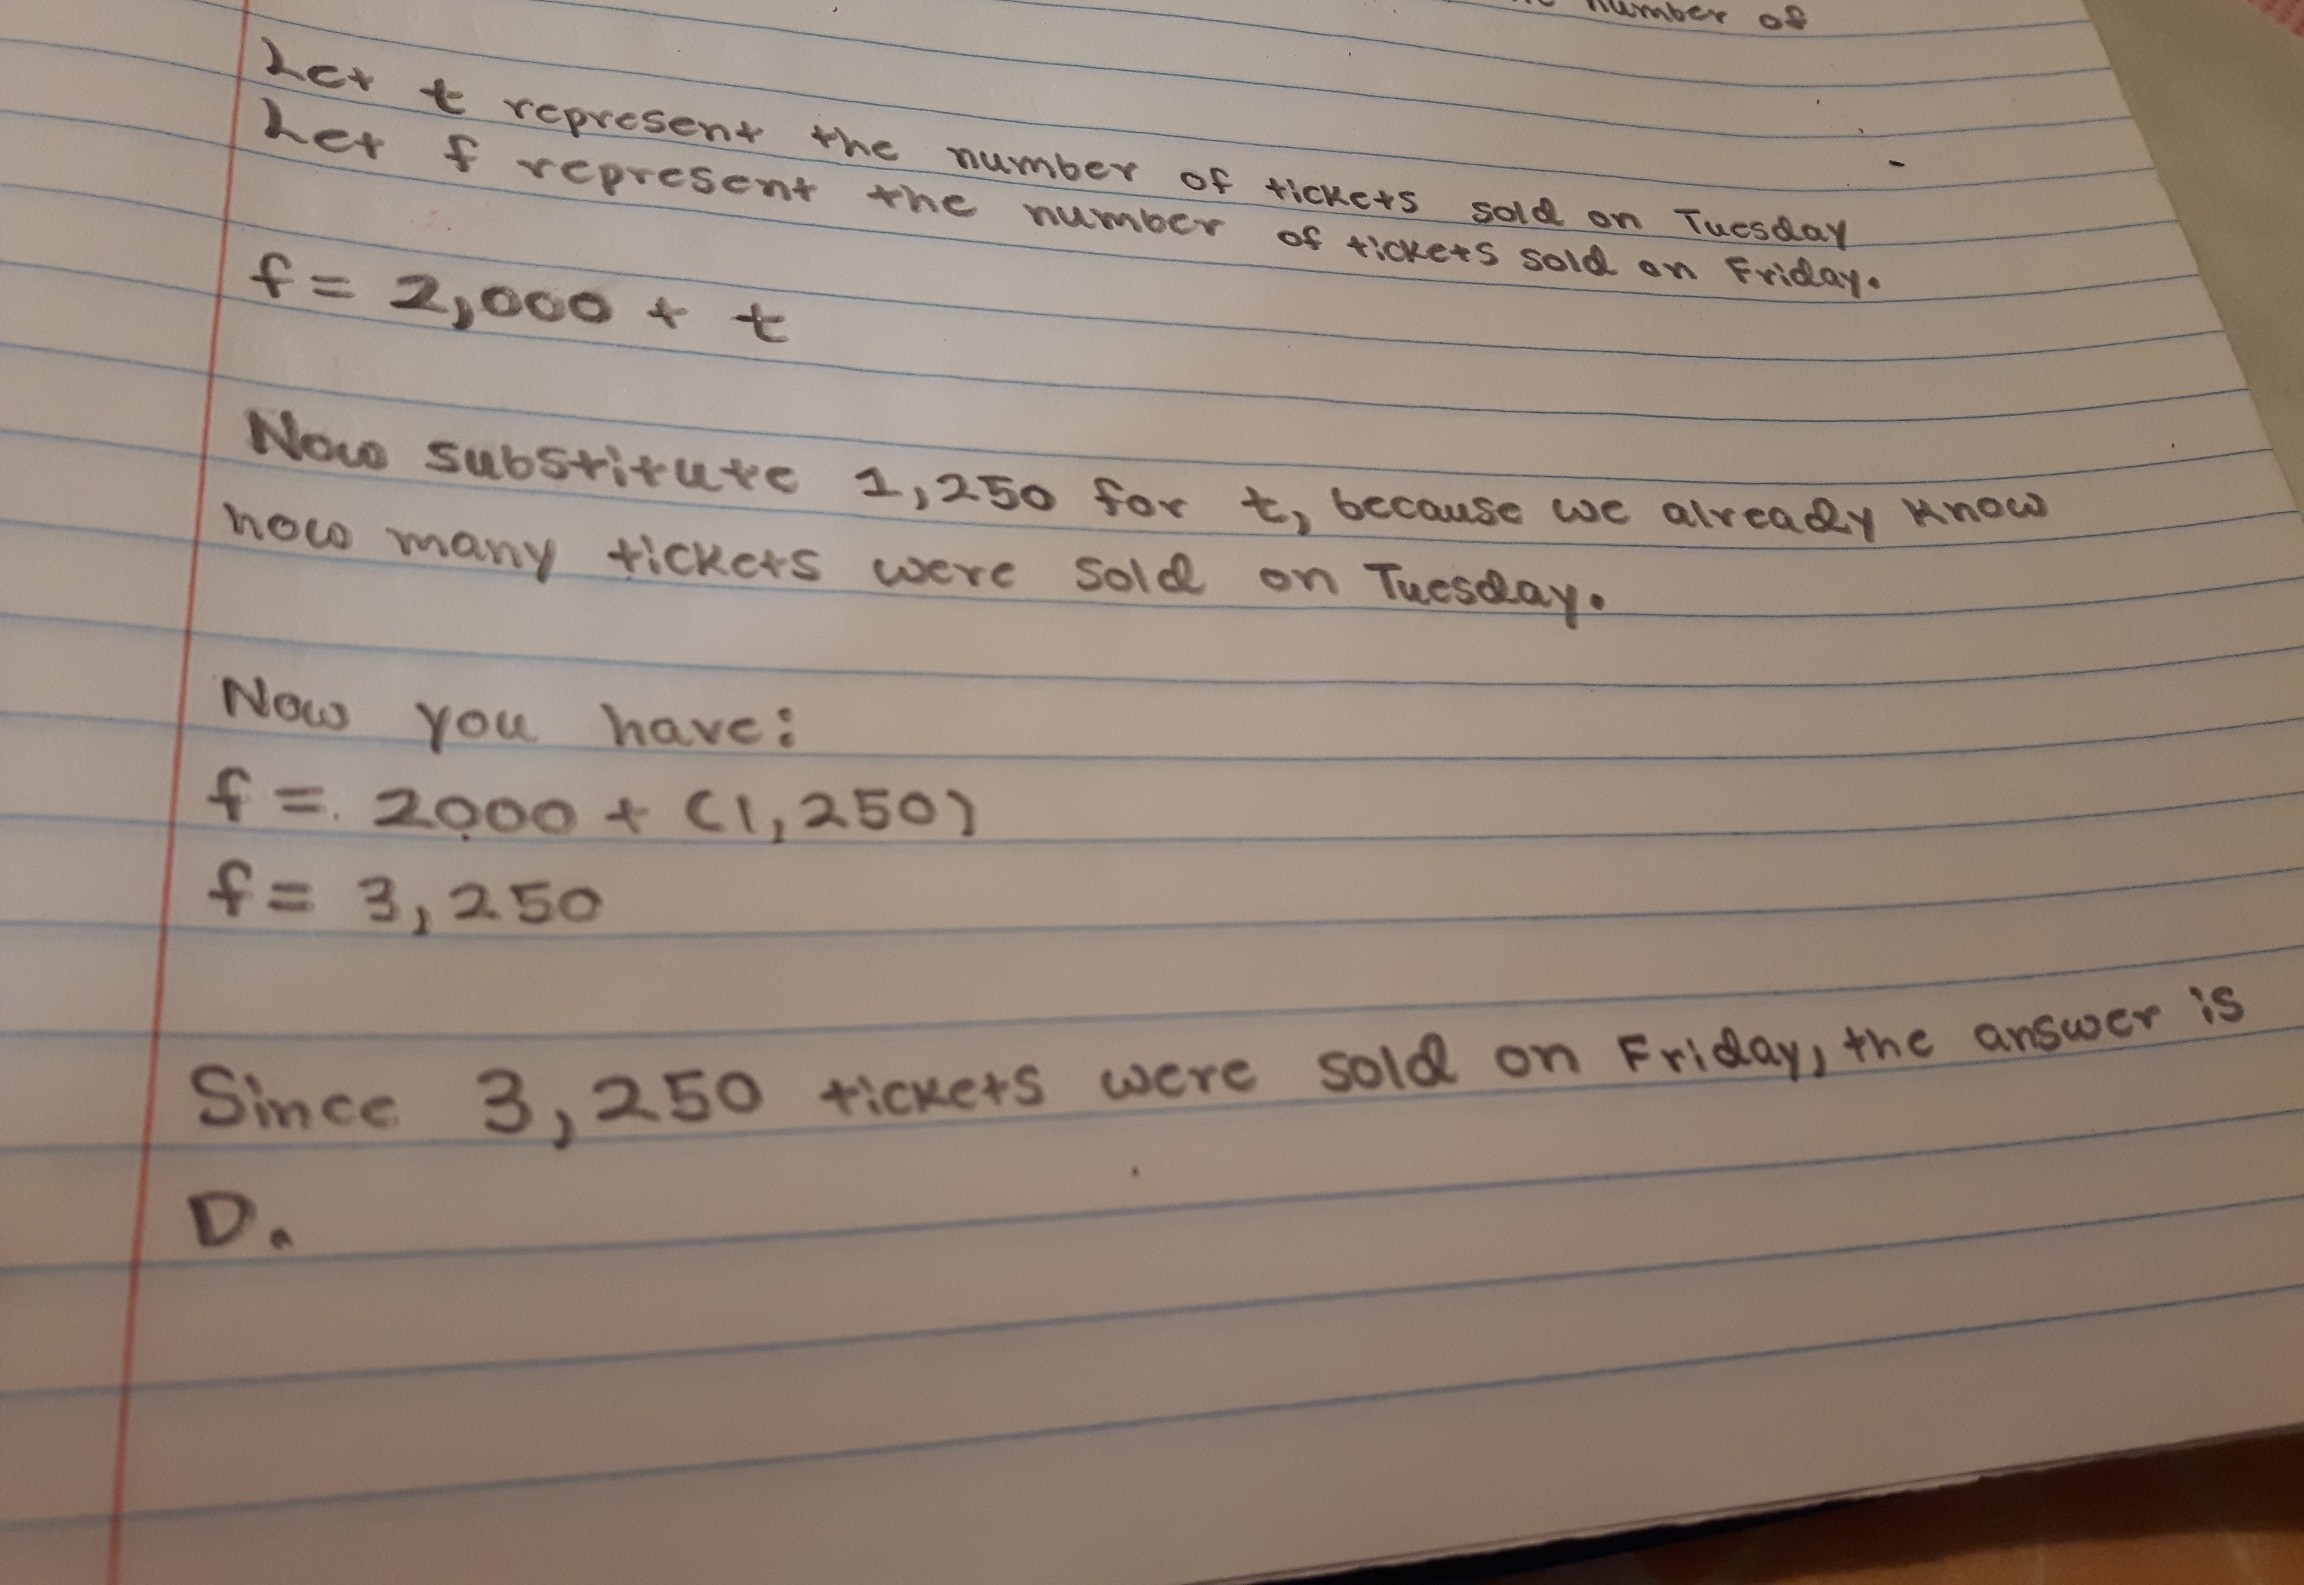 number of
Let t represent the number of tickets sold on Tuesday
Let f represent the number of tickets sold on Friday.
f = 2,000 + t
Now substitute 1,250 for t, because we already know
how many tickets were sold on Tuesday.
Now you have:
f = 2000 + (1,250)
f = 3,250
Since 3,250 tickets were sold on Friday, the answer is
D.